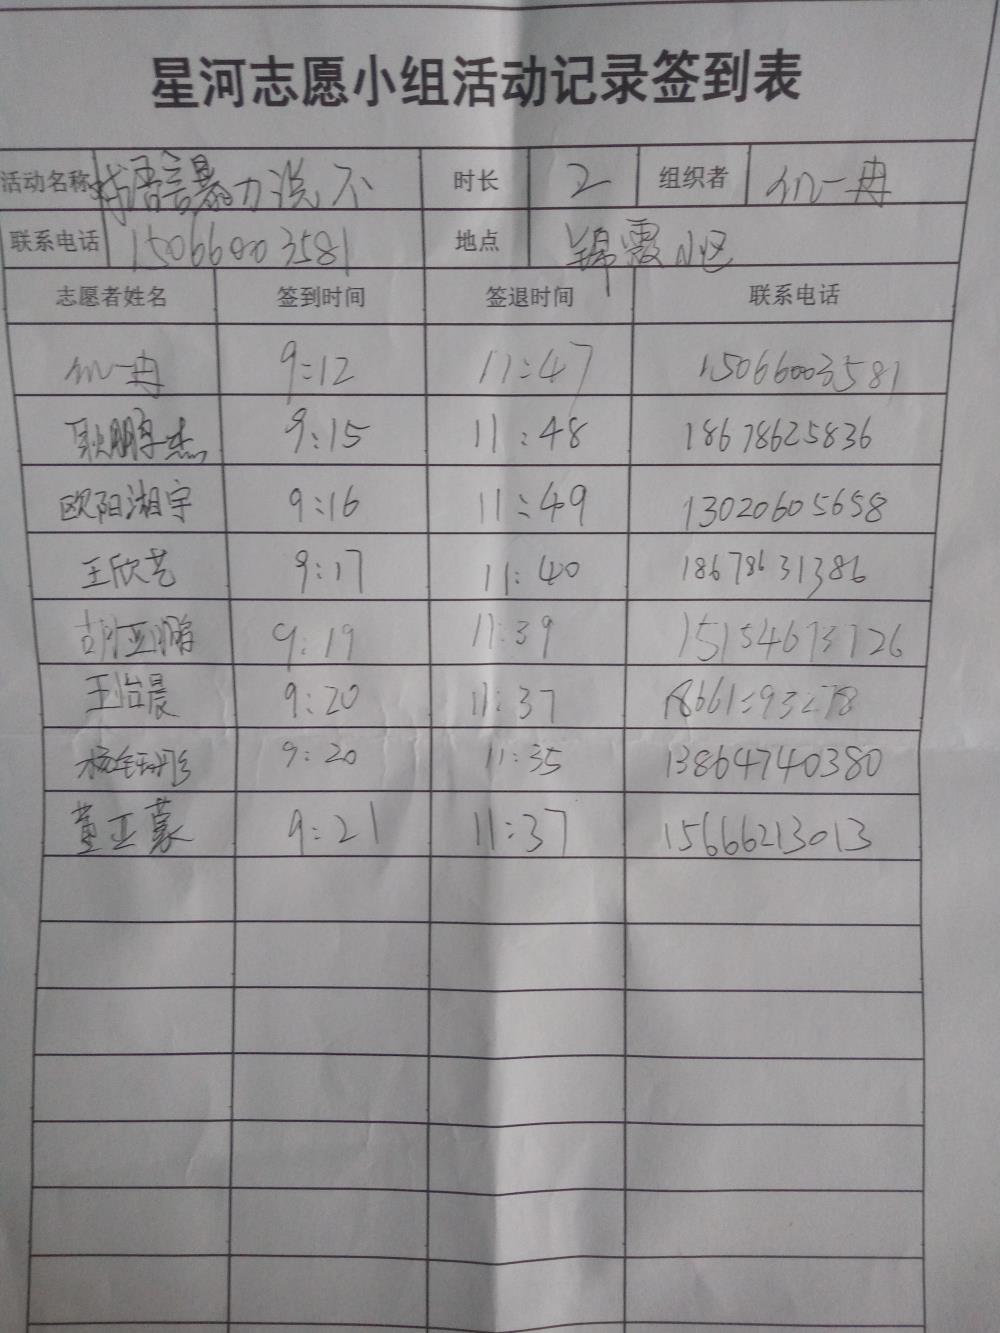 星河志愿小组活动记录签到表
活动名称 对语言暴力说不 时长 2 组织者 一冉
联系电话 15066003581 地点 锦霞小区
志愿者姓名 签到时间 签退时间 联系电话
一冉 9:12 11:47 15066003581
耿鹏杰 9:15 11:48 18678625836
欧阳湘宇 9:16 11:49 13020605658
王欣艺 9:17 11:40 18678631386
胡亚鹏 9:19 11:39 15154673726
王怡晨 9:20 11:37
杨 9:20 11:35 13864740380
董正蒙 9:21 11:37 15666213013